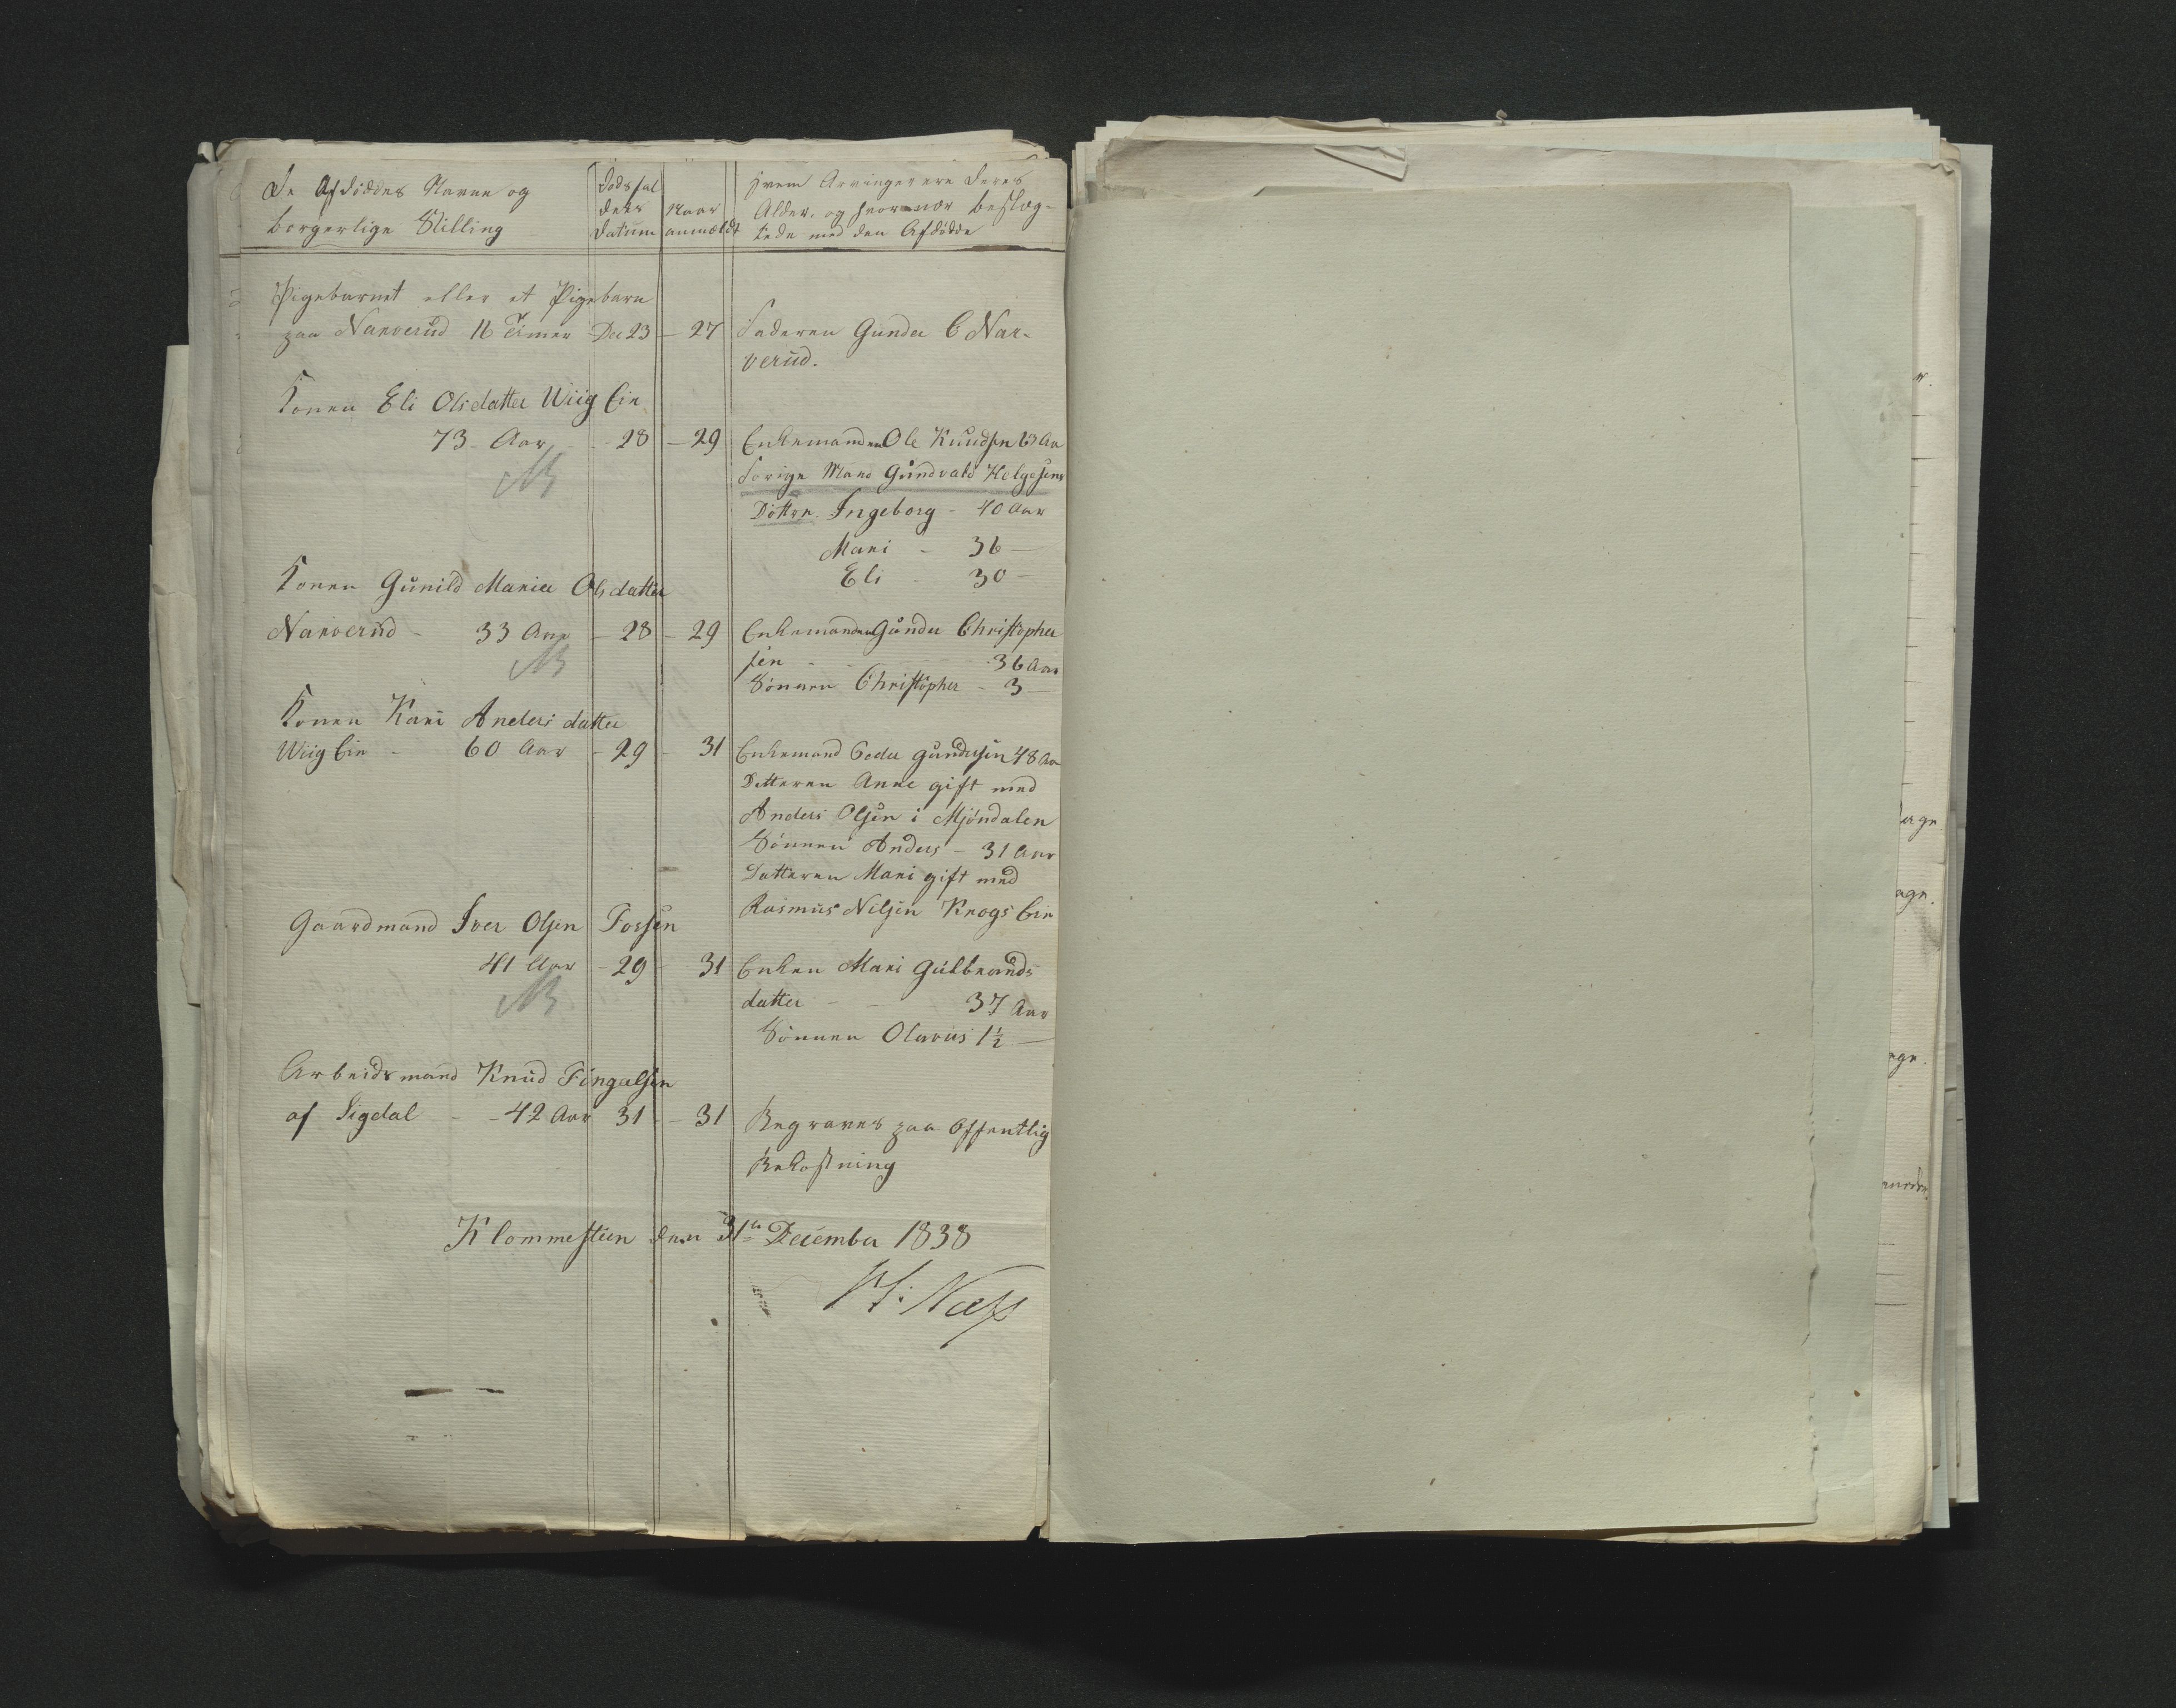 De Afdödes Navne og
borgerlige Stilling
Dödsfal
dets
Datum
Naar
anmeldt
Hvem Arvinger ere deres
Alder, og hvor nær beslæg-
tede med den Afdöde
Pigebarnet eller et Pigebarn
paa Narverud 16 Timer Dec 23 - 27 Faderen Gunder C Nar-
verud.
Konen Eli Olsdatter Wiig Eie
73 Aar - 28 - 29 Enkemanden Ole Knudsen 63 Aar
NB
forige Mand Gundvald Helgesens
Döttre. Ingeborg - 40 Aar
Mari - 36 -
Eli - 30 -
Konen Gunild Maria Olsdatter
Narverud - 33 Aar - 28 - 29 Enkemanden Gunder Christopher
NB
sen - 36 Aar
Sönnen Christopher - 3 -
Konen Kari Andersdatter
Wiig Eie - 60 Aar - 29 - 31 Enkemand Peder Gundersen 48 Aar
Datteren Anne gift med
Anders Olsen i Mjöndalen
Sönnen Anders - 31 Aar
Datteren Mari gift med
Rasmus Nilsen Krogs Eie
Gaardmand Iver Olsen Fossen
41 Aar - 29 - 31 Enken Mari Gulbrands
NB
datter - - 37 Aar
Sönnen Olavus 1½ -
Arbeidsmand Knud Fingalsen
af Sigdal - - 42 Aar 31 - - 31 Begraves paa Offentlig
Bekostning
Klommestien den 31te December 1838
Næss